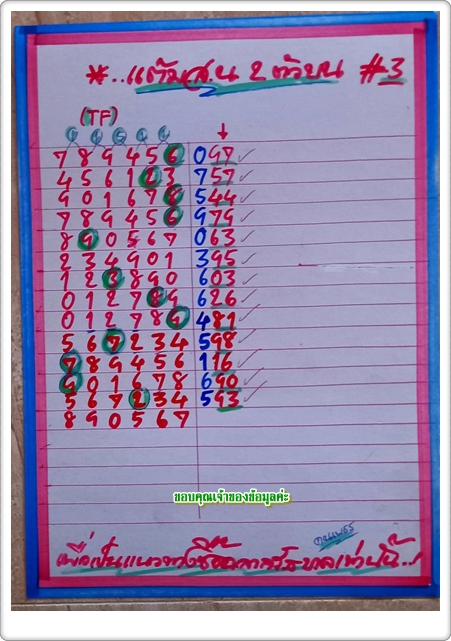 *..แต้มสูน 2 ตัวบน #3
(TF)
7 8 9 4 5 6 097 ✓
4 5 6 1 2 3 757 ✓
9 0 1 6 7 8 544 ✓
7 8 9 4 5 6 979 ✓
8 9 0 5 6 7 063 ✓
2 3 4 9 0 1 395 ✓
1 2 3 8 9 0 603 ✓
0 1 2 7 8 9 626 ✓
0 1 2 7 8 9 481 ✓
5 6 7 2 3 4 598 ✓
7 8 9 4 5 6 116 ✓
9 0 1 6 7 8 690 ✓
5 6 7 2 3 4 593 ✓
8 9 0 5 6 7
ขอบคุณเจ้าของข้อมูลค่ะ
เพื่อเป็นแนวทางซื้อสลากรัฐบาลเท่านั้น..!